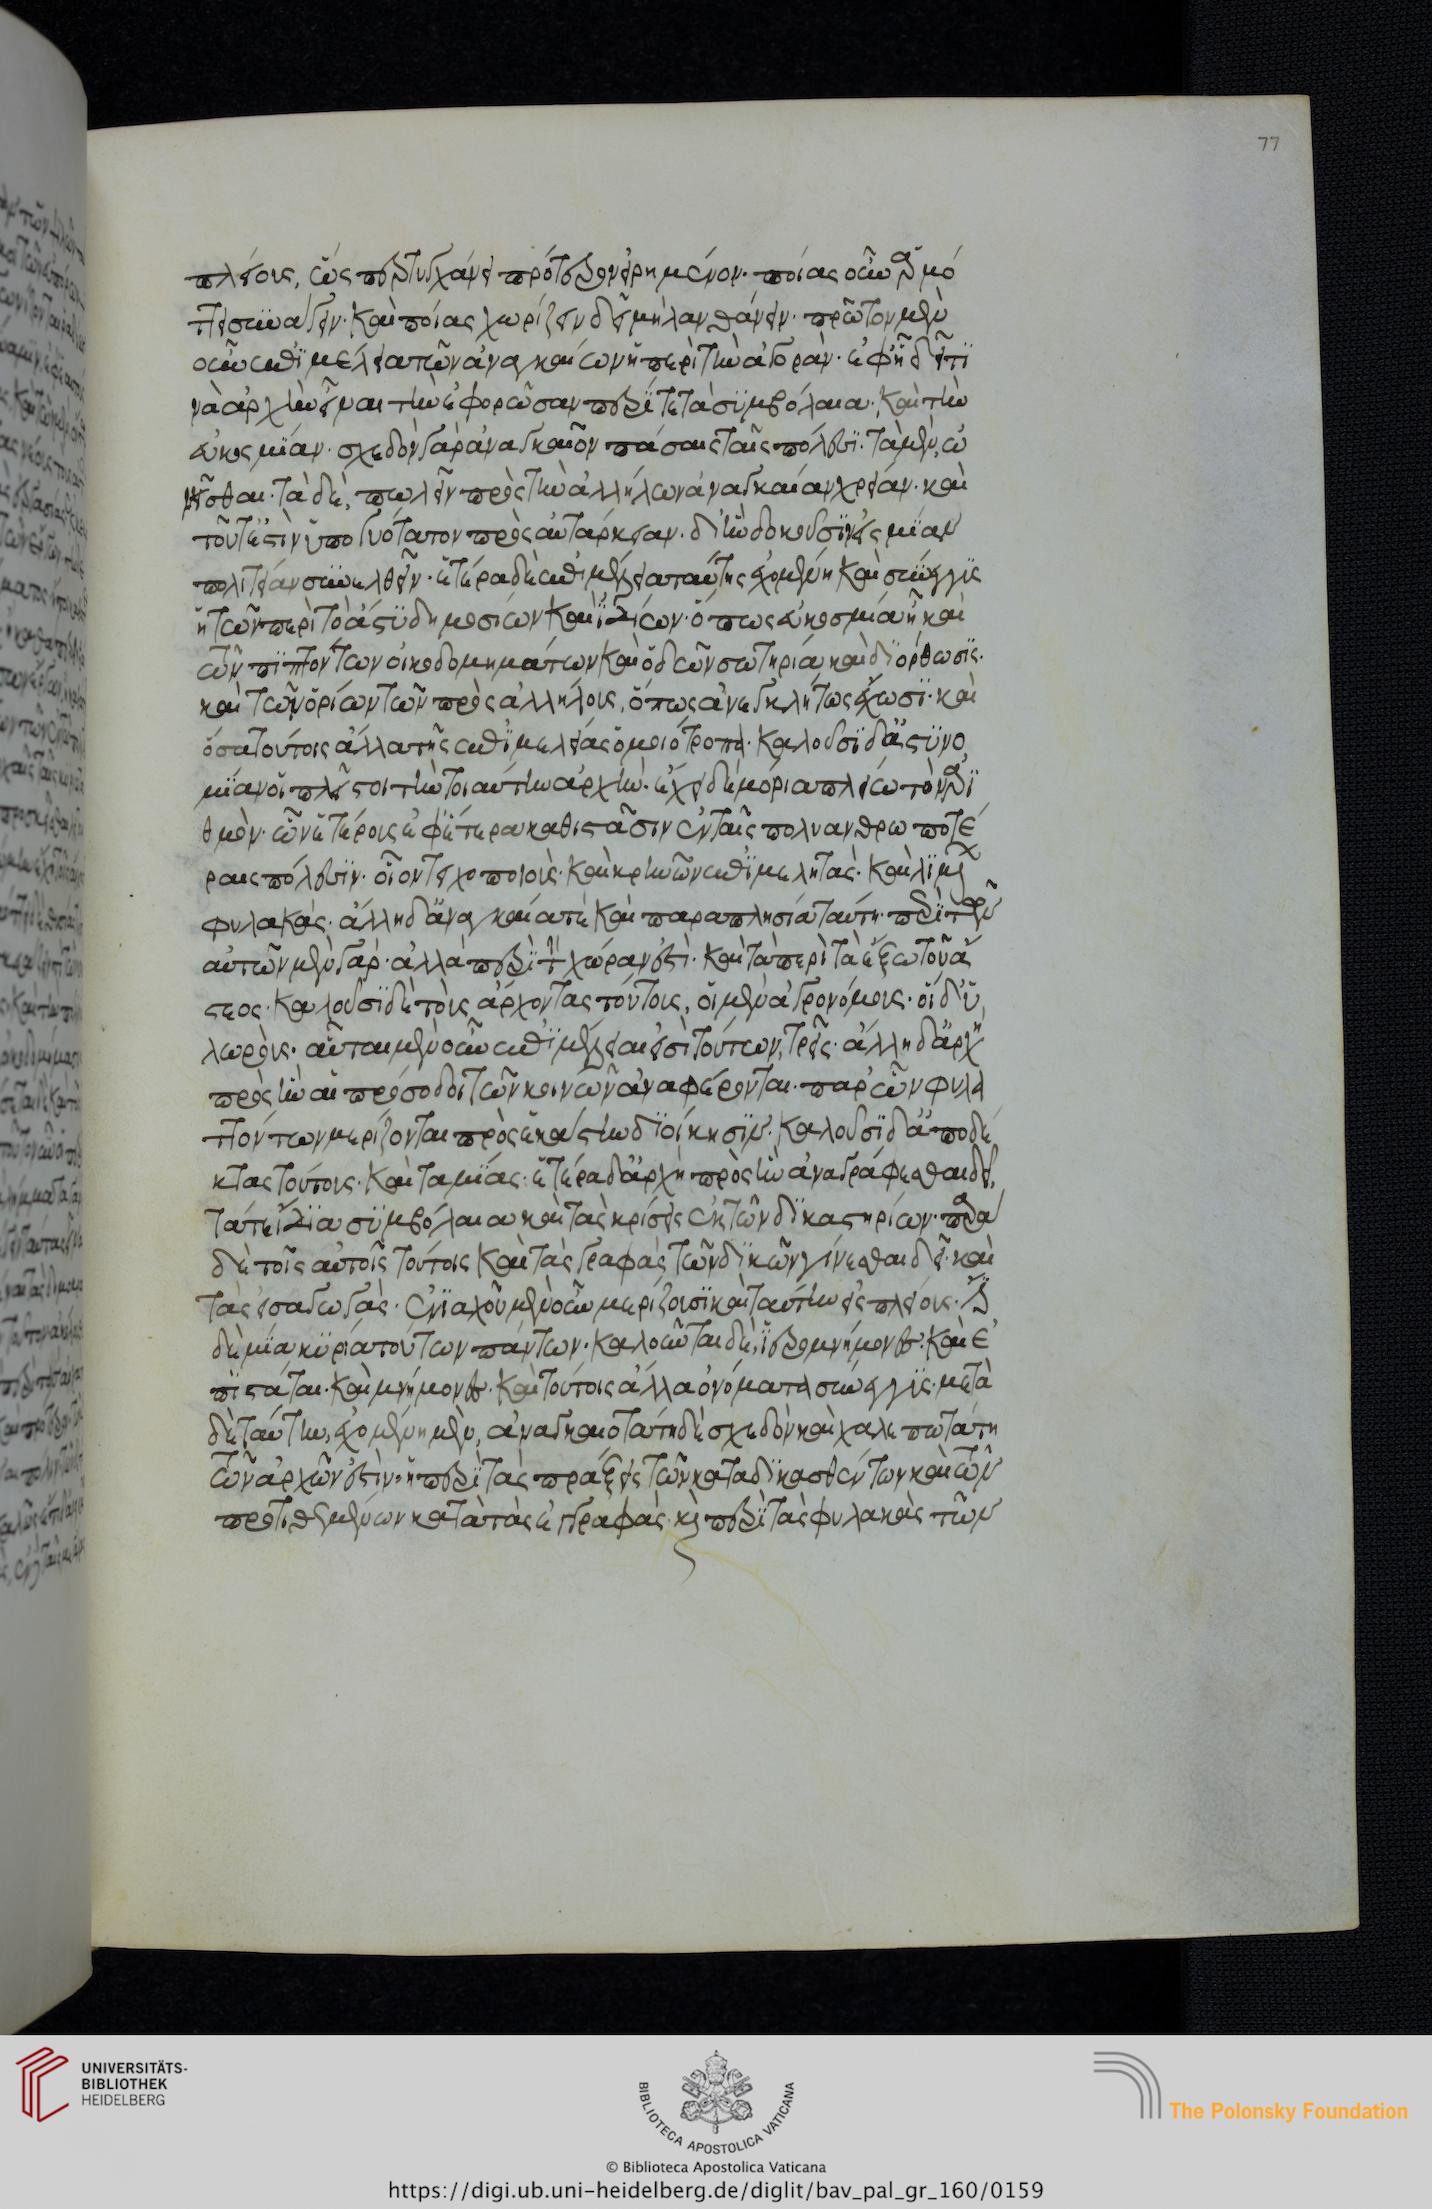 77
πλείους, ὡς περ τυγχάνει πρότερον εἰρημένον. ποίας οὖν ἁρμό
ττει συνάγειν. καὶ ποίας χωρίζειν δεῖ μὴ λανθάνειν. πρῶτον μὲν
οὖν ἐπιμέλεια τῶν ἀναγκαίων ἡ περὶ τὴν ἀγορὰν. ἐφ' ᾗ δεῖ τι
νὰ ἀρχὴν εἶναι τὴν ἐφορῶσαν περί τε τὰ συμβόλαια. καὶ τὴν
εὐκοσμίαν. σχεδὸν γὰρ ἀναγκαῖον πάσαις ταῖς πόλεσι. τὰ μὲν, ὠ
νεῖσθαι. τὰ δὲ, πωλεῖν πρὸς τὴν ἀλλήλων ἀναγκαίαν χρείαν. καὶ
τοῦτ' ἐστὶν ὑπογυότατον πρὸς αὐτάρκειαν. δι' ἣν δοκοῦσιν εἰς μίαν
πολιτείαν συνελθεῖν. ἑτέρα δὲ ἐπιμέλεια ταύτης ἐχομένη καὶ σύνεγγυς
ἡ τῶν περὶ τὸ ἄστυ δημοσίων καὶ ἰδίων. ὅπως εὐκοσμία ᾖ καὶ
τῶν πιπτόντων οἰκοδομημάτων καὶ ὁδῶν σωτηρία καὶ διόρθωσις.
καὶ τῶν ὁρίων τῶν πρὸς ἀλλήλους, ὅπως ἀνεγκλήτως ἔχωσι. καὶ
ὅσα τούτοις ἄλλα τῆς ἐπιμελείας ὁμοιότροπα. καλοῦσι δ' ἀστυνο
μίαν οἱ πλεῖστοι τὴν τοιαύτην ἀρχὴν. ἔχει δὲ μόρια πλείω τὸν ἀρι
θμὸν. ὧν ἑτέρους ἐφ' ἕτερα καθιστᾶσιν ἐν ταῖς πολυανθρωποτέ
ραις πόλεσιν. οἷον τειχοποιοὺς. καὶ κρηνῶν ἐπιμελητὰς. καὶ λιμένων
φύλακάς. ἄλλη δ' ἀναγκαία τε καὶ παραπλησία ταύτῃ. περὶ τῶν
αὐτῶν μὲν γάρ. ἀλλὰ περὶ τὴν χώραν ἐστὶ. καὶ τὰ περὶ τὰ ἔξω τοῦ ἄ
στεος. καλοῦσι δὲ τοὺς ἄρχοντας τούτους, οἱ μὲν ἀγρονόμους. οἱ δ' ὑ
λωροὺς. αὗται μὲν οὖν ἐπιμέλειαι εἰσὶ τούτων, τρεῖς. ἄλλη δ' ἀρχὴ
πρὸς ἣν αἱ πρόσοδοι τῶν κοινῶν ἀναφέρονται. παρ' ὧν φυλα
ττόντων μερίζονται πρὸς ἑκάστην διοίκησιν. καλοῦσι δ' ἀποδέ
κτας τούτους. καὶ ταμίας. ἑτέρα δ' ἀρχὴ πρὸς ἣν ἀναγράφεσθαι δεῖ,
τά τε ἴδια συμβόλαια καὶ τὰς κρίσεις ἐκ τῶν δικαστηρίων. παρὰ
δὲ τοῖς αὐτοῖς τούτοις καὶ τὰς γραφὰς τῶν δικῶν γίνεσθαι δεῖ. καὶ
τὰς εἰσαγωγάς. ἐνιαχοῦ μὲν οὖν μερίζουσι καὶ ταύτην εἰς πλείους. ἔστι
δὲ μία κυρία τούτων πάντων. καλοῦνται δὲ, ἱερομνήμονες. καὶ ἐ
πιστάται. καὶ μνήμονες. καὶ τούτοις ἄλλα ὀνόματα σύνεγγυς. μετὰ
δὲ ταύτην, ἐχομένη μὲν, ἀναγκαιοτάτη δὲ σχεδὸν καὶ χαλεπωτάτη
τῶν ἀρχῶν ἐστὶν. ἡ περὶ τὰς πράξεις τῶν καταδικασθέντων καὶ τῶν
προτιθεμένων κατὰ τὰς ἐγγραφάς. καὶ περὶ τὰς φυλακὰς τῶν
UNIVERSITÄTS-
BIBLIOTHEK
HEIDELBERG
BIBLIOTECA APOSTOLICA VATICANA
© Biblioteca Apostolica Vaticana
The Polonsky Foundation
https://digi.ub.uni-heidelberg.de/diglit/bav_pal_gr_160/0159